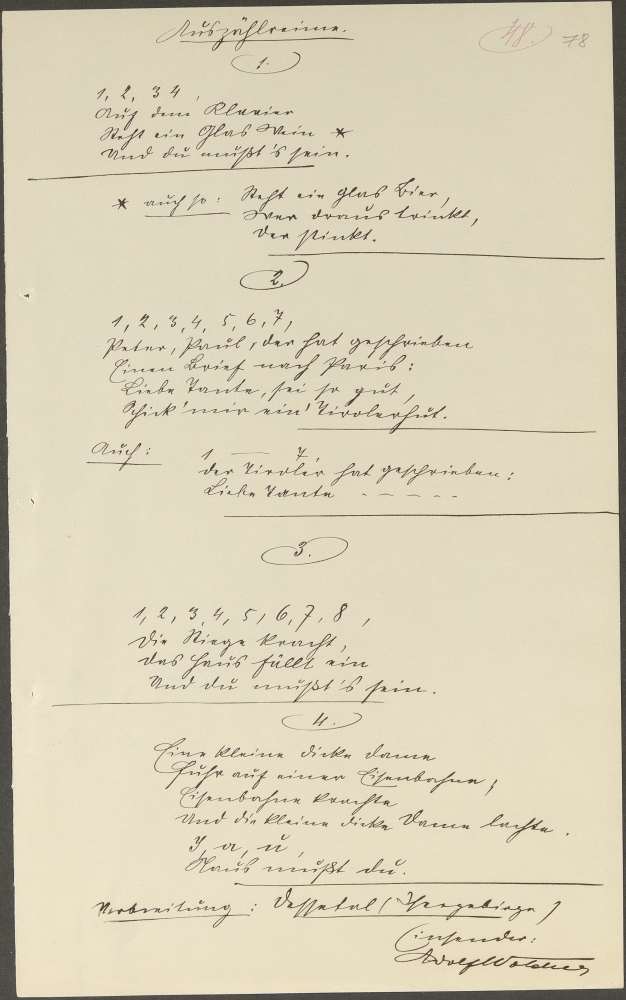 Auszählreime.
48. 78
1.
1, 2, 3 4,
Auf dem Klavier
Steht ein Glas Wein *
Und du mußt's sein.
* auch so: Steht ein Glas Bier,
Wer draus trinkt,
Der stinkt.
2.
1, 2, 3, 4, 5, 6, 7,
Peter, Paul, der hat geschrieben
Einen Brief nach Paris:
Liebe Tante, sei so gut,
Schick' mir ein' Tirolerhut.
Auch: 1 — 7,
der Tiroler hat geschrieben:
Liebe Tante - - - - -
3.
1, 2, 3, 4, 5, 6, 7, 8,
Die Stiege kracht,
Das Haus fällt ein
Und du mußt's sein.
4.
Eine kleine dicke Dame
Fuhr auf einer Eisenbahne;
Eisenbahne krachte
Und die kleine dicke Dame lachte.
I, a, u,
Raus mußt du.
Verbreitung: Dessetal (Isergebirge)
Einsender:
Adolf